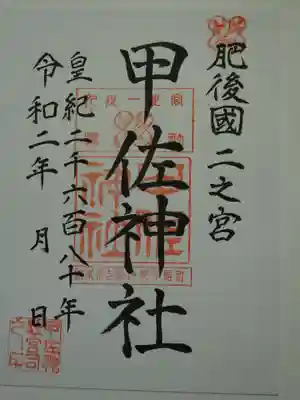 肥後國二之宮
甲佐神社
皇紀二千六百八十年
令和二年 月 日